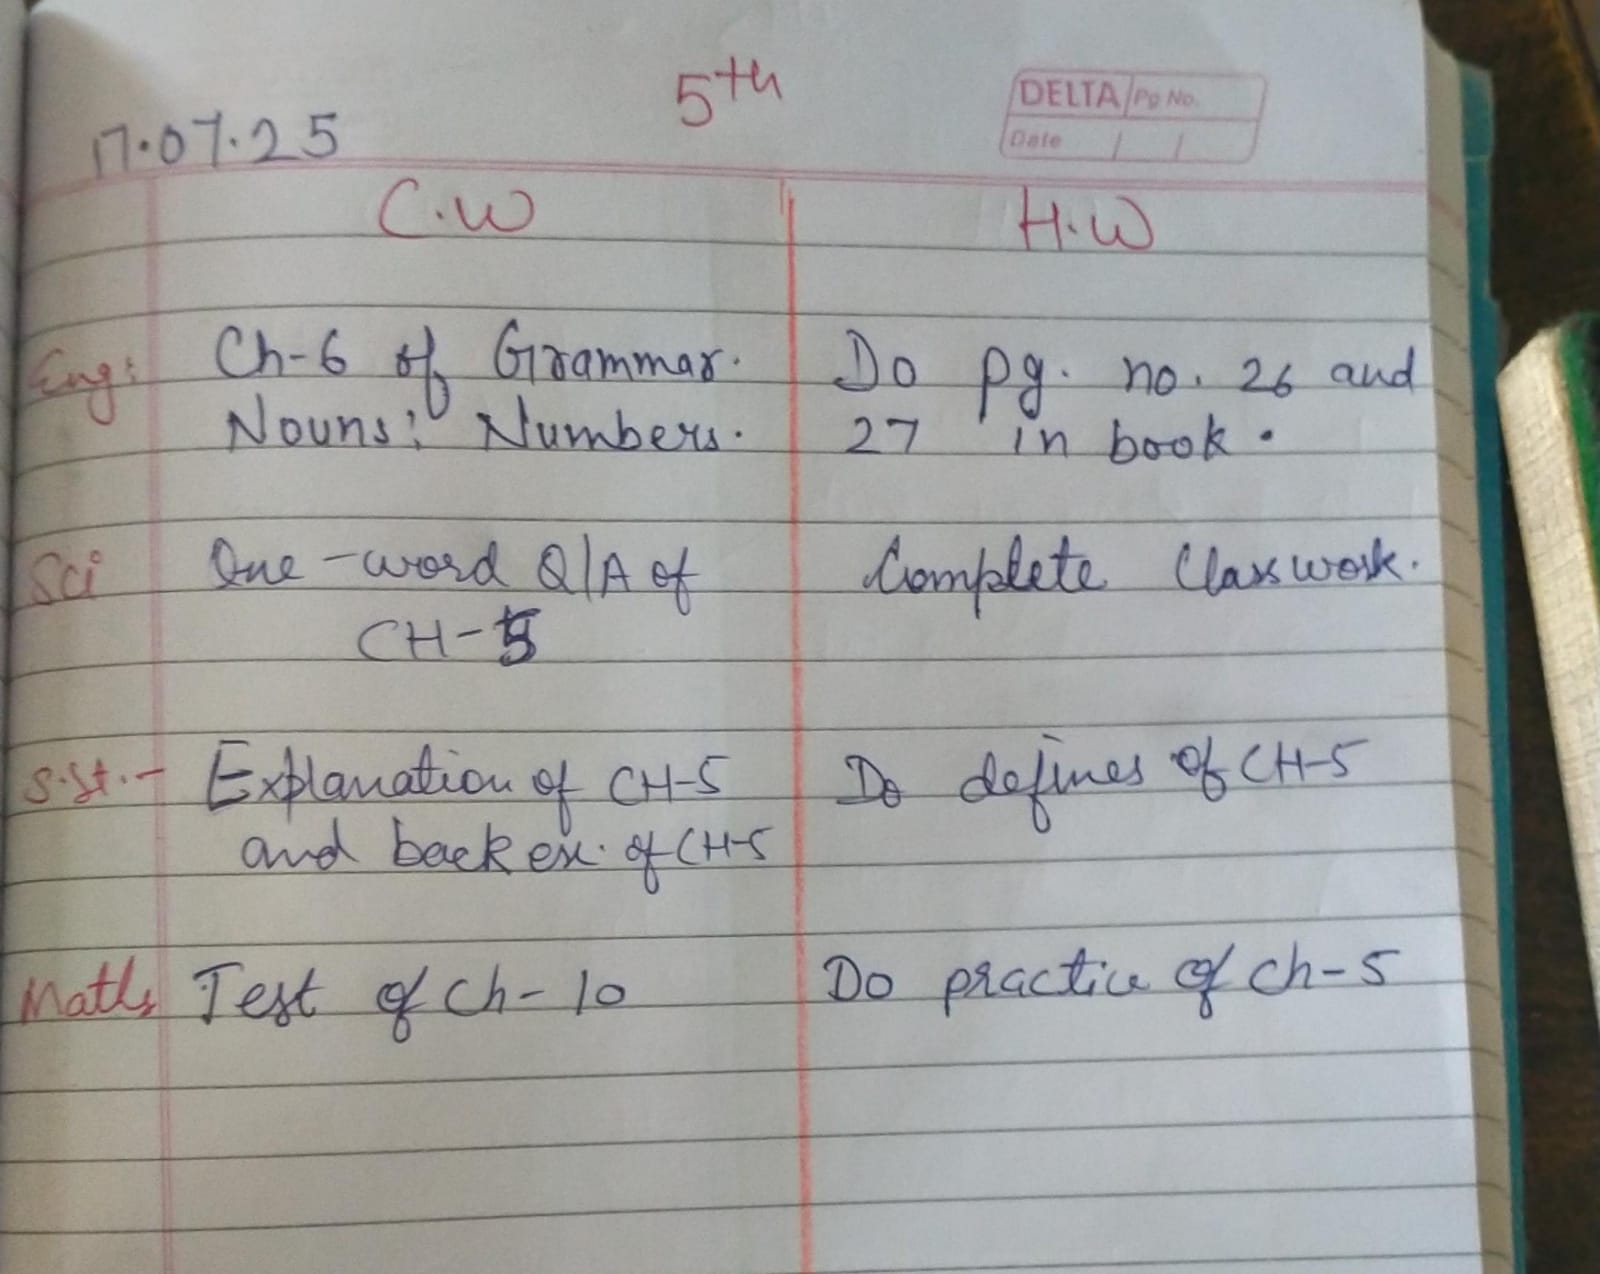 5th
DELTA Pg No.
Date / /
17.07.25
C.W H.W
Eng: Ch-6 of Grammar. Do pg. no. 26 and
Nouns: Numbers. 27 in book.
Sci One-word Q/A of Complete Classwork.
CH-5
S.St.- Explanation of CH-5 Do defines of CH-5
and back ex. of CH-5
Maths Test of Ch-10 Do practice of Ch-5